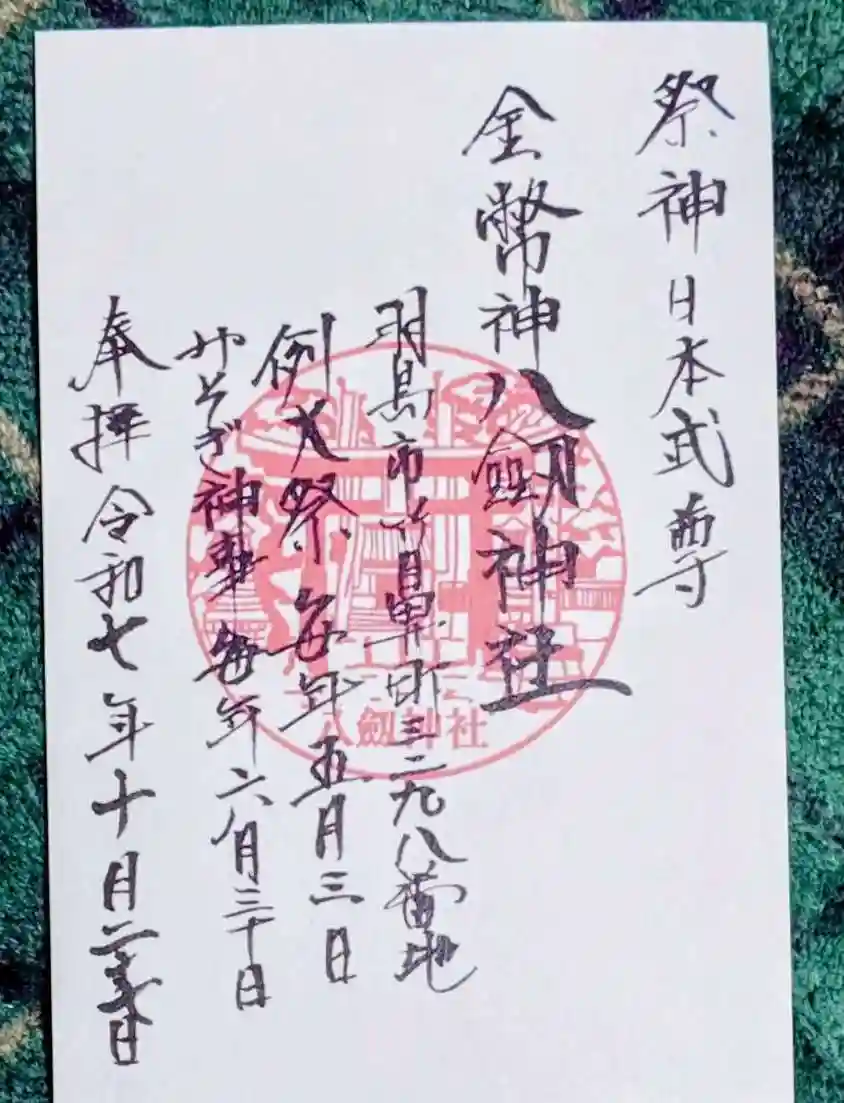 祭神日本武尊
金幣神八劔神社
羽島市竹鼻町三二九八番地
例大祭毎年五月三日
みそぎ神事毎年六月三十日
奉拝令和七年十月二十
日
八劔神社